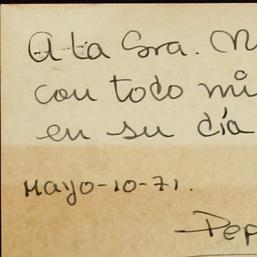 A la Sra. M
con todo mi
en su día
Mayo-10-71.
Pep